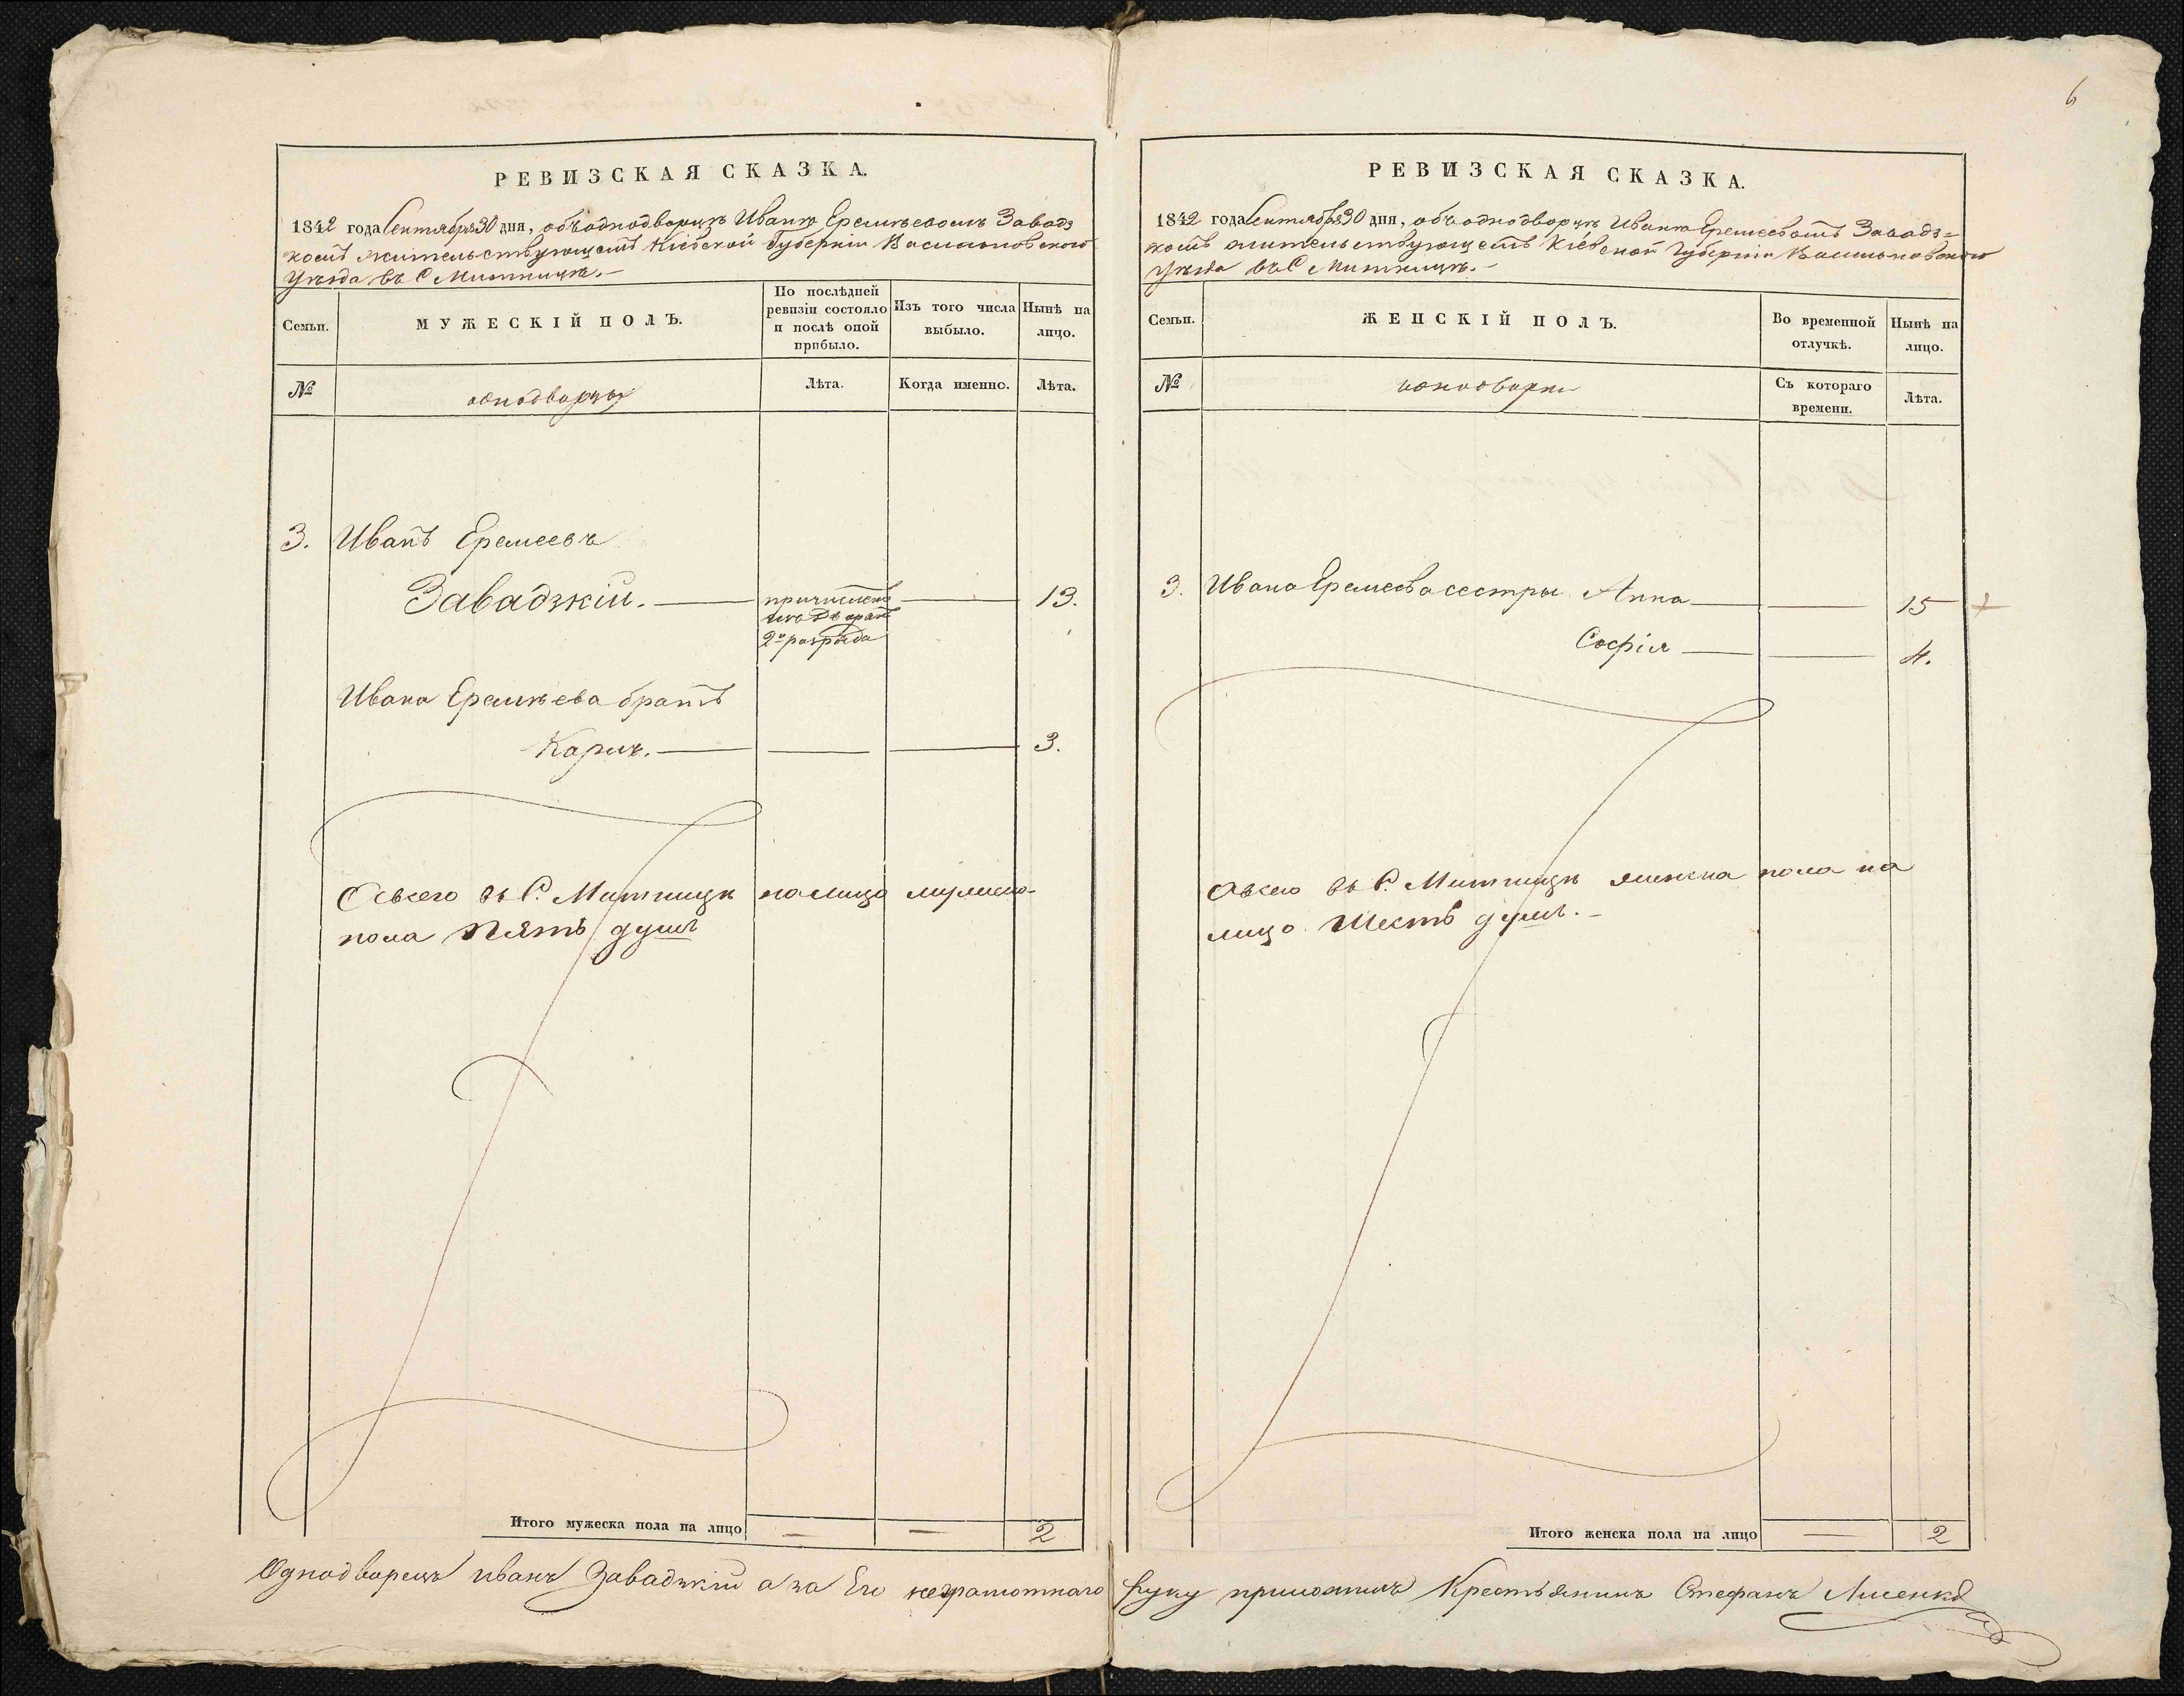 6
РЕВИЗСКАЯ СКАЗКА.
1842 года Сентября 30 дня, объ однодворцѣ Иванѣ Еремѣевомъ Завадз
комъ жительствующемъ Кіевской Губерніи Васильковского
уѣзда въ С Митницѣ.–
Семьи.
МУЖЕСКІЙ ПОЛЪ.
По послѣдней
ревизіи состояло
и послѣ оной
прибыло.
Изъ того числа
выбыло.
Нынѣ на
лицо.
№
однодворцы
Лѣта.
Когда именно.
Лѣта.
3. Иванъ Еремеевъ
Завадзкій. — 13.
2го разряда
Ивана Еремѣева братъ
Карпъ. — 3.
Овсего въ С. Митницѣ налицо мужеска
пола пять душъ
Итого мужеска пола на лицо — — 2
РЕВИЗСКАЯ СКАЗКА.
1842 года Сентября 30 дня, объ однодворцѣ Иванѣ Еремеевомъ Завадз=
комъ жительствующемъ Кіевской Губерніи Васильковского
уѣзда въ С Митницѣ.–
Семьи.
ЖЕНСКІЙ ПОЛЪ.
Во временной
отлучкѣ.
Нынѣ на
лицо.
№
однодворки
Съ котораго
времени.
Лѣта.
3. Ивана Еремеева сестры Анна — — 15 +
Софія — — 4.
Овсего въ С. Митницѣ женска пола на
лицо шесть душъ.–
Итого женска пола на лицо — 2
Однодворецъ иванъ Завадзкій а за Его неграмотнаго руку приложилъ Крестьянинъ Стефанъ Лисенко